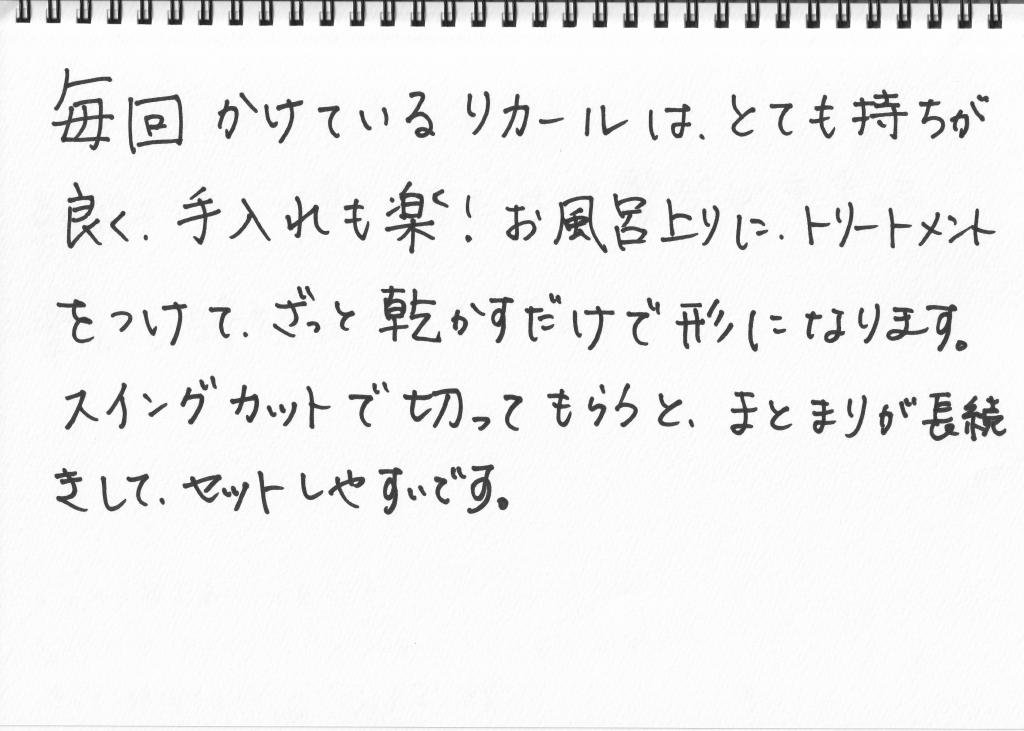 毎回かけているリカールは、とても持ちが
良く、手入れも楽！お風呂上りに、トリートメント
をつけて、ざっと乾かすだけで形になります。
スイングカットで切ってもらうと、まとまりが長続
きして、セットしやすいです。